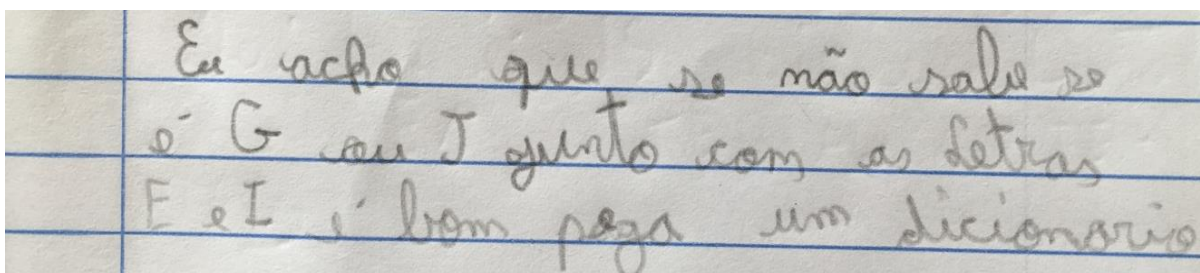 Eu acho que se não sabe se
é G ou J junto com as letras
E e I é bom pega um dicionario